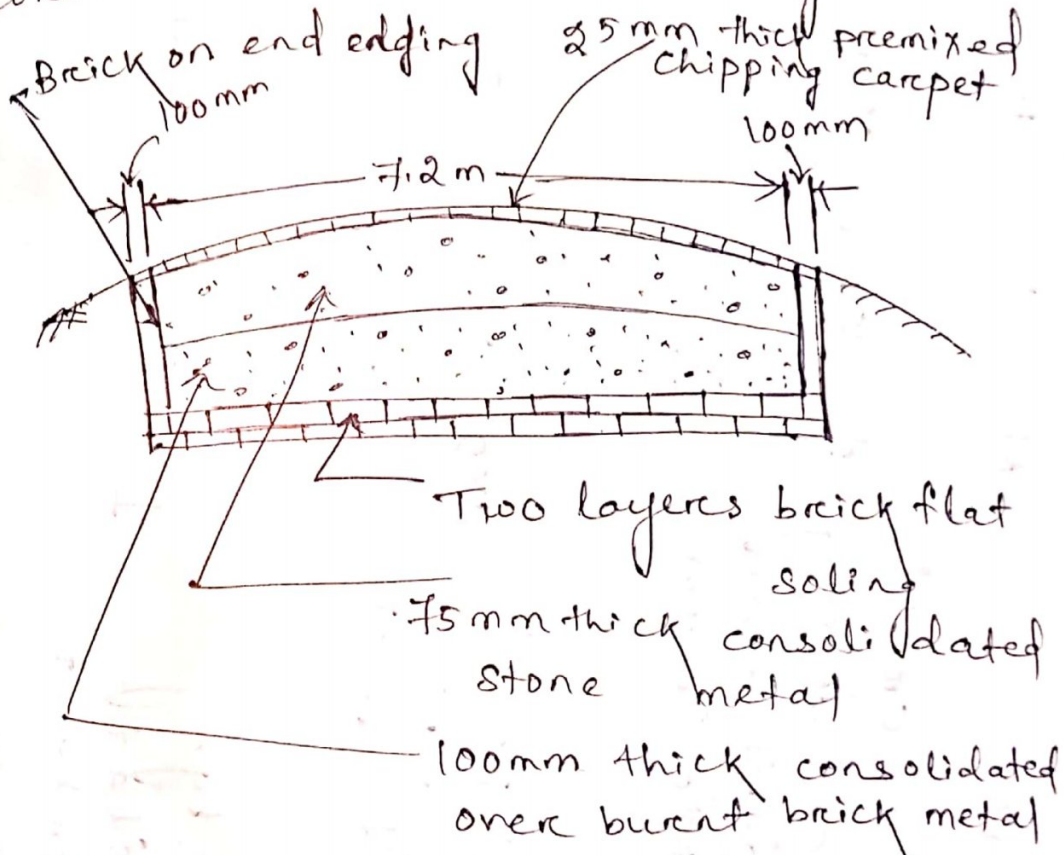 Brick on end edging
100mm
25mm thick premixed
chipping carpet
100mm
7.2 m
Two layers brick flat
soling
75mm thick consolidated
stone metal
100mm thick consolidated
over burnt brick metal